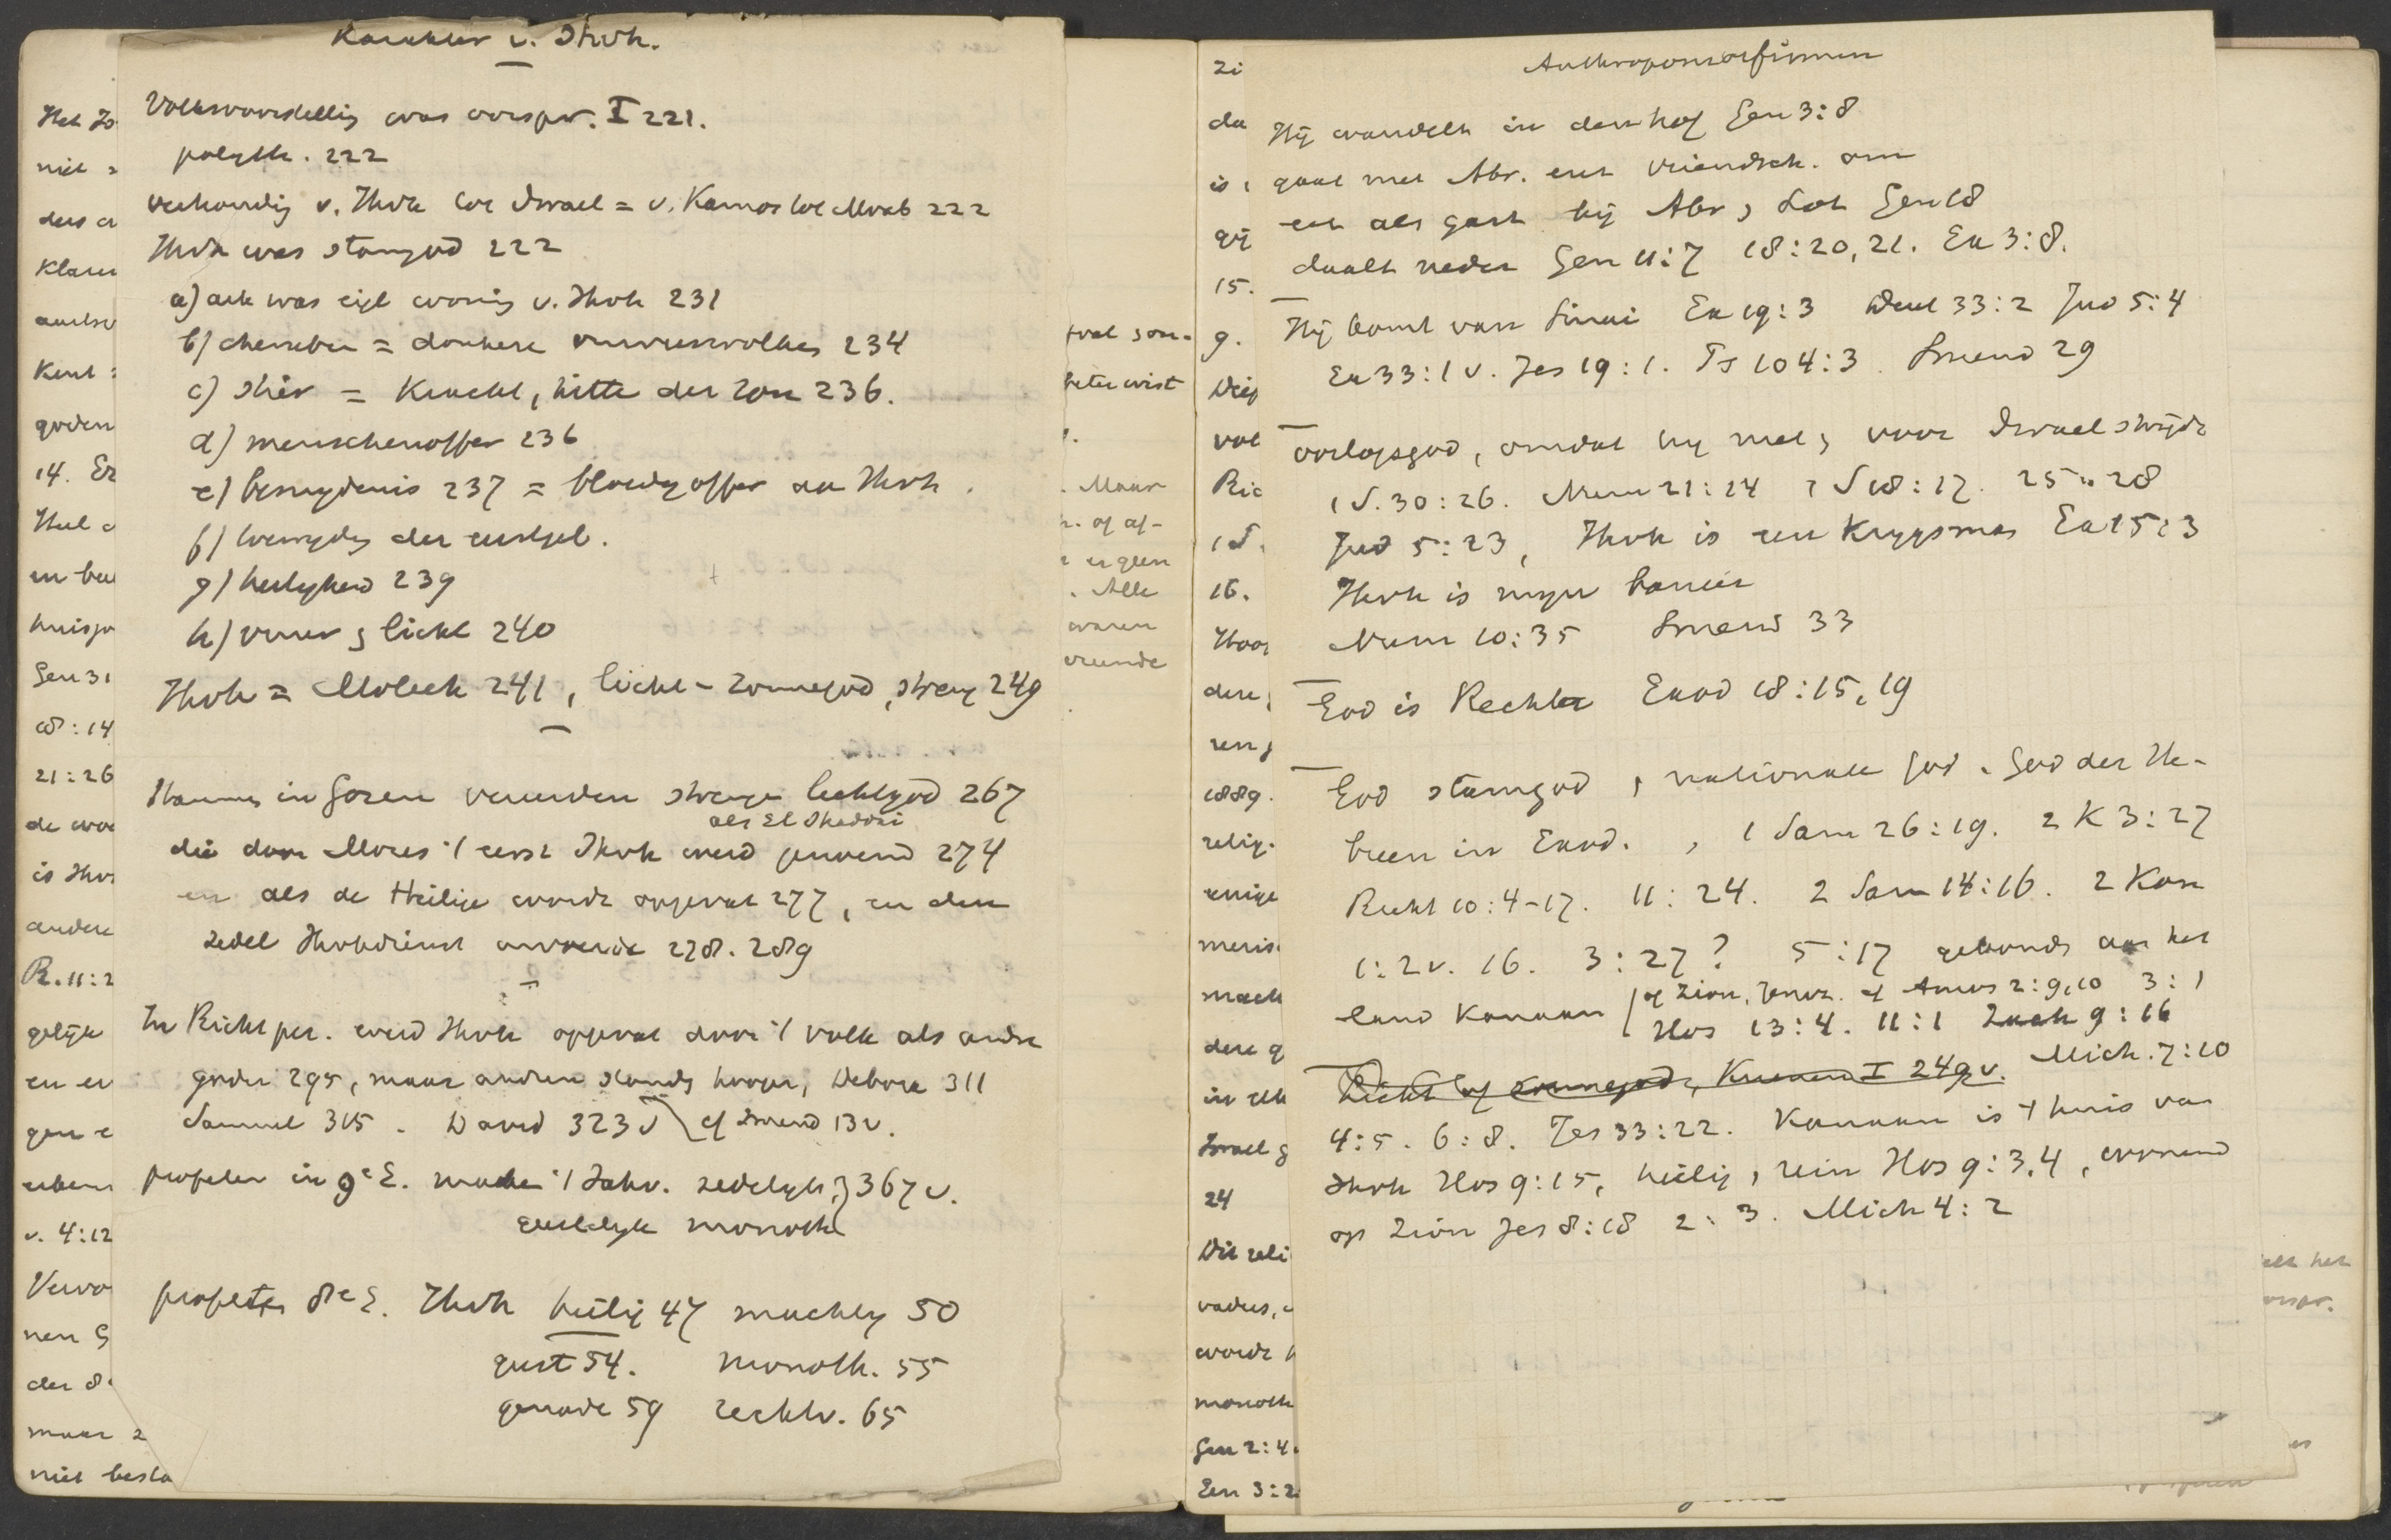 Karakter v. Ihvh.
Volksvoorstelling was oorspr. I 221.
polyth. 222
verhoudig v. Ihvh tot Israel = v. Kamos tot Moab 222
Ihvh was stamgod 222
a) ark was eigl woning v. Ihvh 231
b) cherubim = donkere onweerswolken 234
c) stier = Kracht, hitte der zon 236.
d) menschenoffer 236
e) besnydenis 237 = bloedig offer aan Ihvh.
f) toewyding der eerstgeb.
g) heiligheid 239
h) vuur en licht 240
Ihvh = Moloch 241, licht- zonnegod, streng 249
Stammen in Gosen vereerden strenge lichtgod 267
als El Shaddai
die door Mozes 't eerst Ihvh werd genoemd 274
en als de Heilige wordt opgevat 277, en den
zedel Ihvhdienst invoerde 278. 289
In Richt per. werd Ihvh opgevat door 't volk als andre
goden 295, maar andren stonden hooger, Debora 311
Samuel 315. David 323 v cf Smend 13 v.
profeten in 9e E. maken 't Jahv. zedelyk, 367 v.
eindelyk monoth
profeten 8e E. Ihvh heilig 47 machtig 50
geest 54. monoth. 55
genade 59 rechtv. 65
Het Jo
niet
ders
Klaar
Kent
goden
14.
Gen 31
21:26
de
is Ihv
andere
R. 11:2
gelijk
v. 4:12
der 8
maar
niet besta
beter wist
. Maar
. of af-
er geen
. Alle
waren
vreemde
Zi
da
is
15.
9.
vol
Ric
1 S.
16.
1889.
relig.
eenige
mach
dere g
in elk
Israel g
24
Dit reli
vaders,
wordt
monoth
Gen 2:4
Anthropomorfismen
Hij wandelt in den hof Gen 3:8
gaat met Abr. een vriendsch. om
eet als gast bij Abr, Lot Gen 18
daalt neder Gen 11:7 18:20, 21. Ex 3:8.
Hij komt van Sinai Ex 19:3 Deut 33:2 Jud 5:4
Ex 33:1 v. Jes 19:1. Ps 104:3. Smend 29
oorlogsgod, omdat hij met, voor Israel strydt
1 S. 30:26. Num 21:14 1 S 18:17. 25:28
Jud 5:23, Ihvh is een Krygsman Ex 15:3
Ihvh is myn banier
Num 10:35 Smend 33
God is Rechter Exod 18:15, 19
God stamgod, nationale God. God der He-
breen in Exod., 1 Sam 26:19. 2 K 3:27
Richt 10:4-17. 11:24. 2 Sam 14:16. 2 Kon
1:2 v. 16. 3:27? 5:17 gebonden aan het
land Kanaan of Zion, Jeruz. cf Amos 2:9, 10 3:1
Hos 13:4. 11:1 Zach 9:16
Licht of zonnegod, Kuenen I 249 v. Mich. 7:10
4:5. 6:8. Jes 33:22. Kanaan is 't huis van
Ihvh Hos 9:15, heilig, rein Hos 9:3, 4, wonend
op Zion Jes 8:18 2:3. Mich 4:2